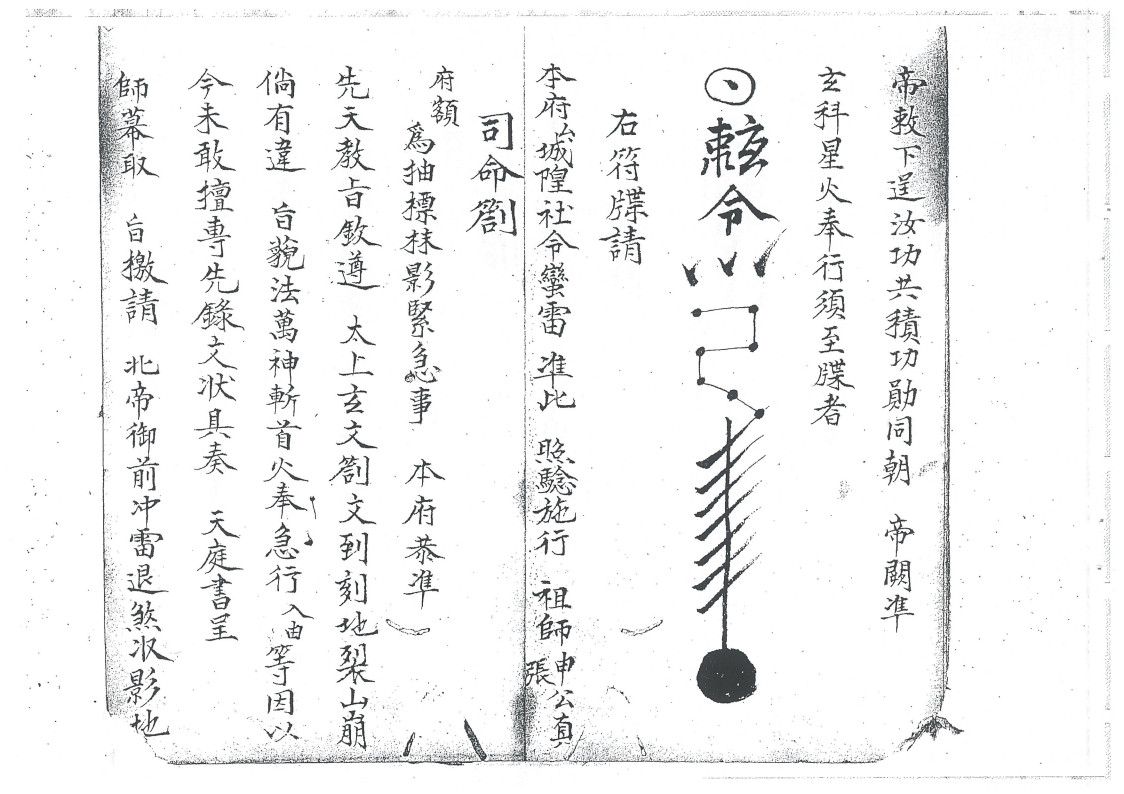 帝敕下逞汝功共積功勛同朝 帝闕準
玄科星火奉行須至牒者
令
右符牒請
本府城隍社令蠻雷 準此 照驗施行 祖師申張公真
司命劄
府額
為抽摽抹影緊急事 本府恭準
先天教旨欽遵 太上玄文劄文到刻地裂山崩
倘有違 旨藐法萬神斬首火奉急行入由等因以
今未敢擅專先錄文狀具奏 天庭書呈
師幕取 旨撽請 北帝御前冲雷退煞收影地